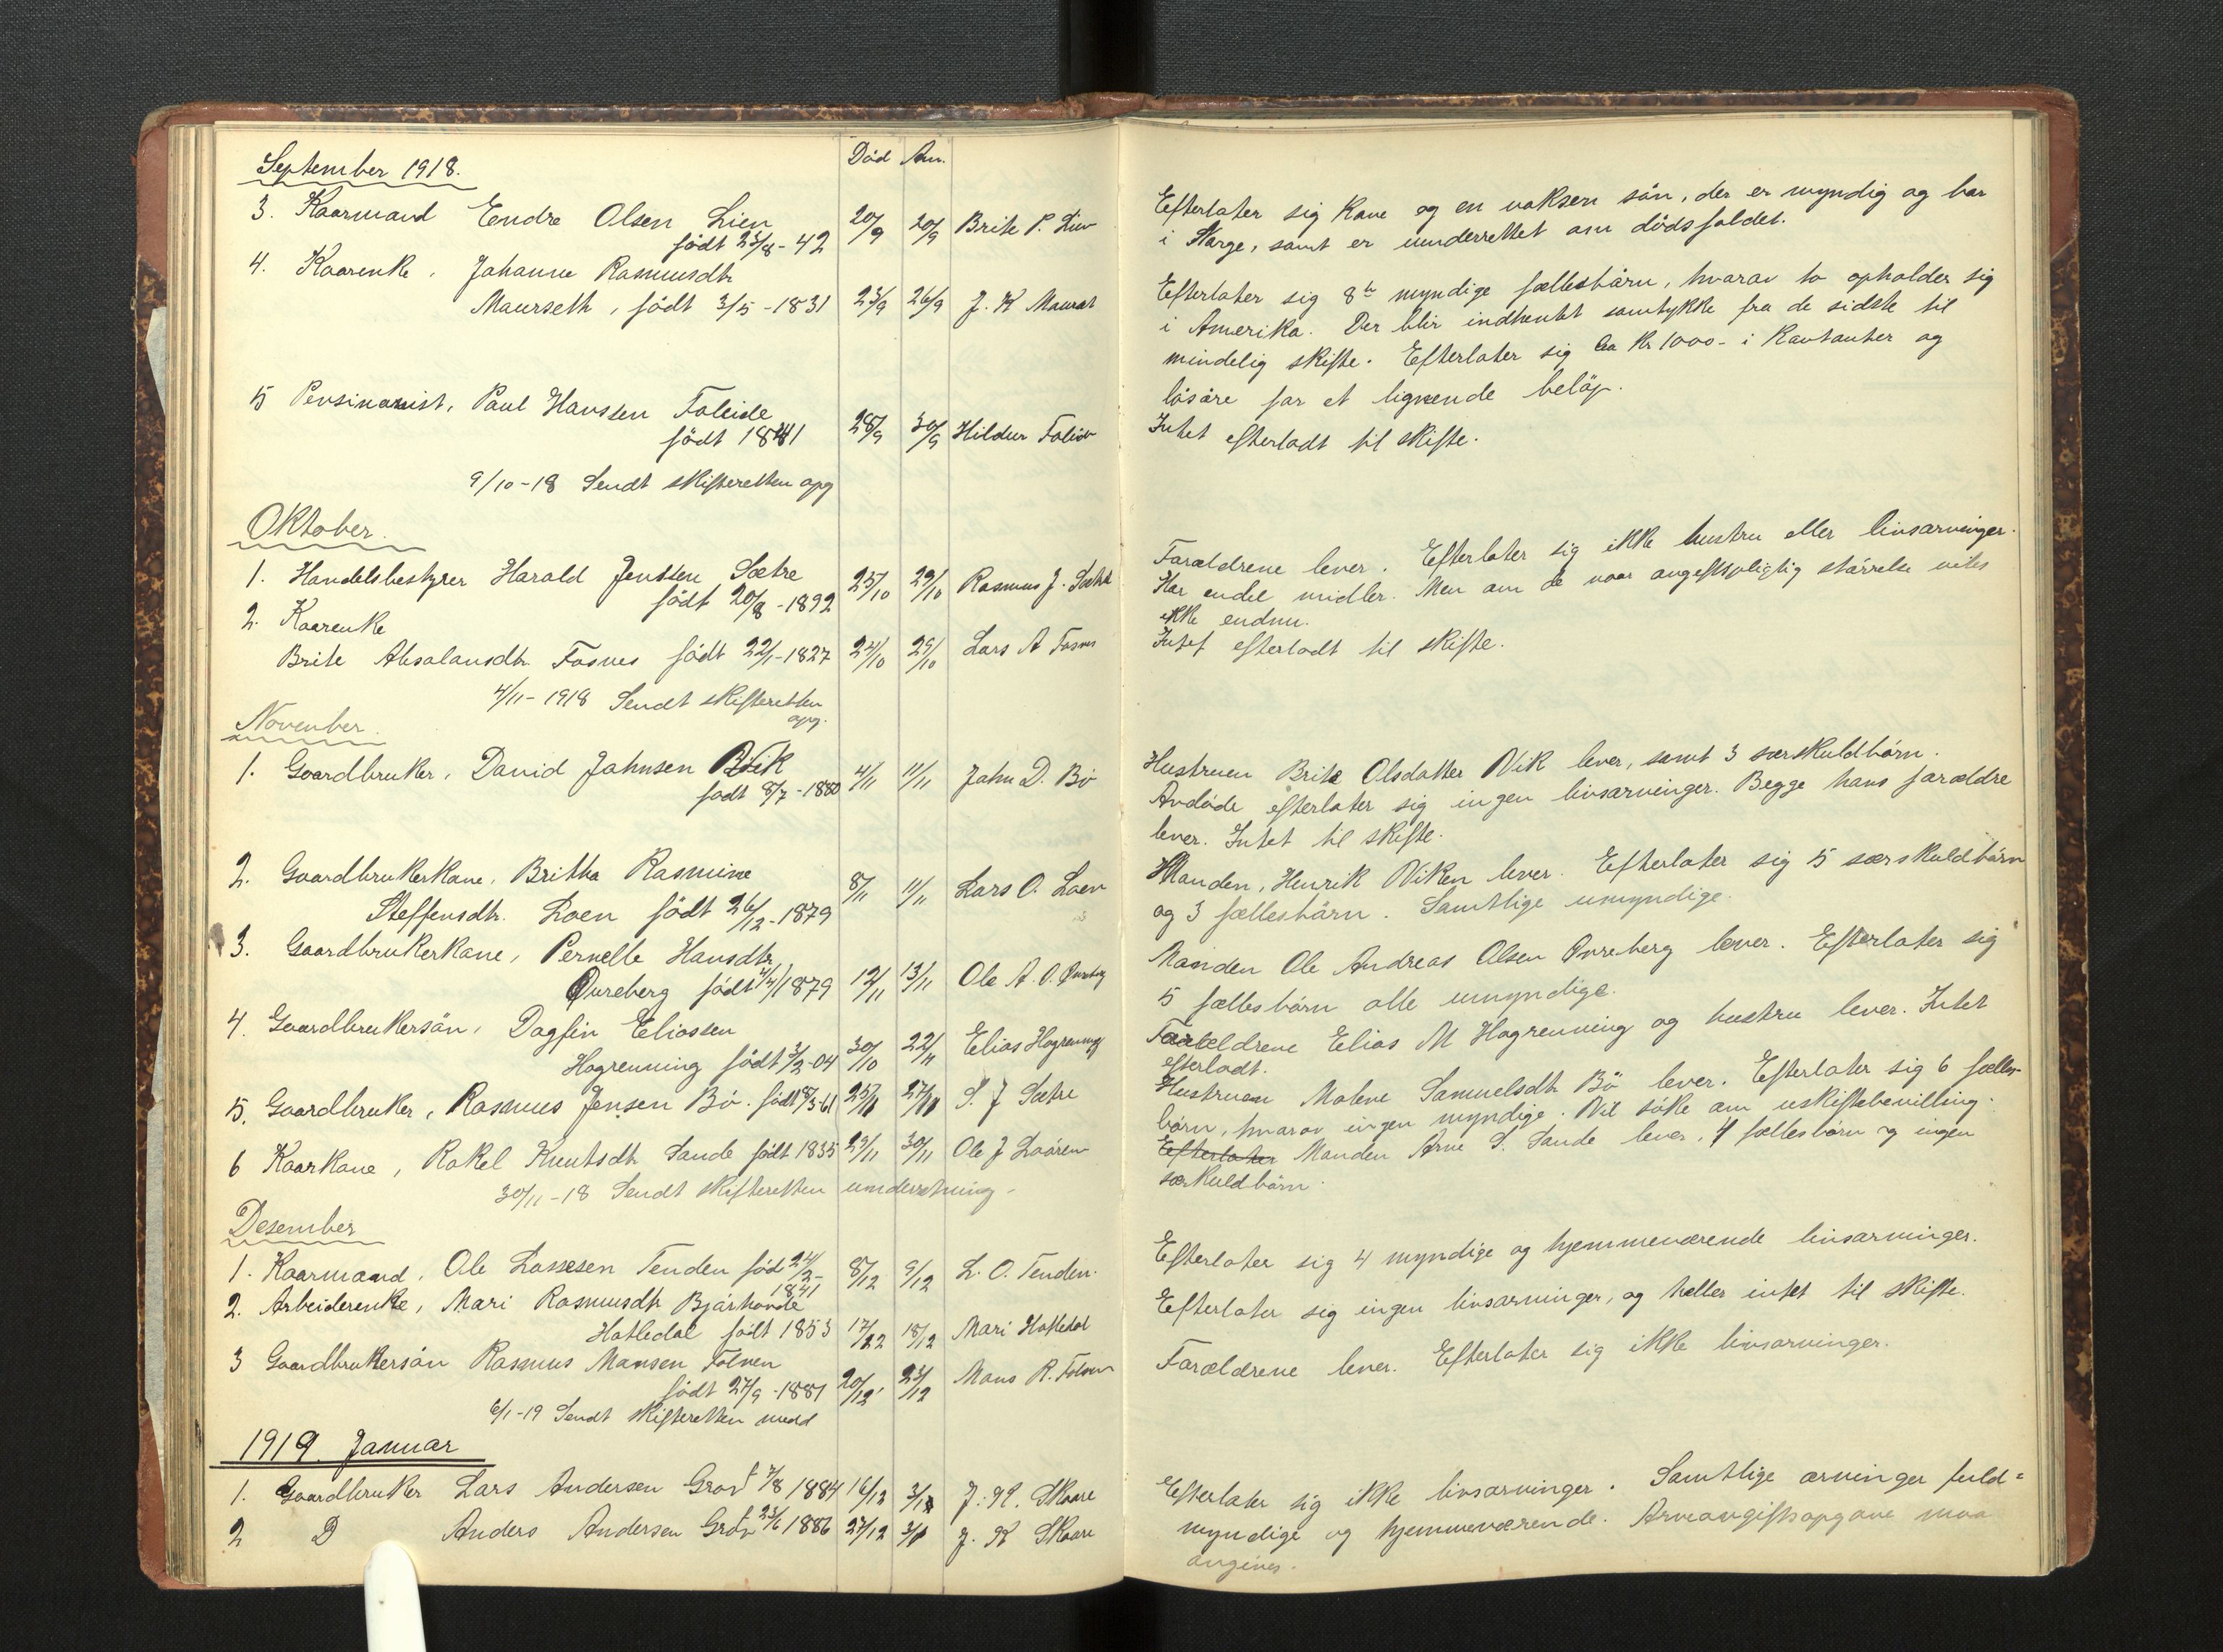 September 1918.
Död Am.
3. Kaarmand Eendre Olsen Lien 20/9 20/9 Brite P. Lien
født 23/8 - 42
4. Kaarenke, Johanne Rasmusdtr
Maurseth, født 3/5 - 1831 23/9 26/9 J. K Maurset
5 Pensinonist, Paul Hanssen Foleide
født 1841 28/9 30/9 Hildur Foleide
9/10 - 18 Sendt skifteretten opg
Oktober.
1. Handelsbestyrer Harald Jenssen Sætre 23/10 29/10 Rasmus J. Sætre
født 20/8 - 1892
2. Kaarenke
Brite Absalonsdtr. Fosnes født 22/1 - 1827 24/10 29/10 Lars A Fosnes
4/11 - 1918 Sendt skifteretten
opg.
November.
1. Gaardbruker, David Johnsen Vik 4/11 11/11 John D. Bö
født 8/7 - 1880
2. Gaardbrukerkone, Britha Rasmine
Steffensdtr. Loen født 26/12 - 1879 8/11 11/11 Lars O. Loen
3. Gaardbrukerkone, Pernelle Hansdtr
Øvreberg født 1879 12/11 13/11 Ole A. O. Øvreberg
4. Gaardbrukersön, Dagfin Eliassen
Hogrenning født 3/2 - 04 30/10 22/11 Elias Hogrenning
5. Gaardbruker, Rasmus Jensen Bö. født 8/3 - 61 23/11 27/11 S. J Sætre
6 Kaarkone, Rakel Knutsdtr Sande født 1835 29/11 30/11 Ole J Loören
30/11 - 18 Sendt skifteretten underretning -
Desember
1. Kaarmand, Ole Lassesen Tenden föd 24/2 - 8/12 9/12 L. O. Tenden.
1841
2. Arbeiderenke, Mari Rasmusdtr Bjørhovde
Hatledal født 1853 17/12 18/12 Mari Hatledal
3 Gaardbrukersön Rasmus Mansen Folven
født 27/9 - 1881 20/12 23/12 Mons R. Folven
6/1 - 19 Sendt skifteretten medd
1919 Januar
1. Gaardbruker Lars Andersen Grov f 7/8 1884 16/12 3/1 J. K. Skaare
2 D Anders Andersen Grov f 23/6 1886 27/12 3/1 J. K Skaare
Efterlater sig kone og en voksen sön, der er myndig og bor
i Norge, samt er underrettet om dödsfaldet.
Efterlater sig 8te myndige fællesbörn, hvorav to opholder sig
i Amerika. Der blir indhentet samtykke fra de sidste til
mindelig skifte. Efterlater sig Ca Kr 1000- i Kontanter og
lösöre for et lignende belöp.
Intet efterladt til skifte.
Forældrene lever. Efterlater sig ikke hustru eller livsarvinger.
Har endel midler. Men om de naar avgiftspligtig störrelse vites
ikke endnu.
Intet efterladt til skifte.
Hustruen Brite Olsdatter Vik lever, samt 3 særskuldbörn.
Avdöde efterlater sig ingen livsarvinger. Begge hans forældre
lever. Intet til skifte.
Manden, Henrik Viken lever. Efterlater sig 5 særskuldbörn
og 3 fællesbörn. Samtlige umyndige.
Manden Ole Andreas Olsen Øvreberg lever. Efterlater sig
5 fællesbörn alle umyndige.
Forældrene Elias M Hogrenning og hustru lever. Intet
efterladt.
Hustruen Malene Samuelsdtr Bö lever. Efterlater sig 6 fælles-
börn, hvorav ingen myndige. Vil söke om uskiftebevilling.
Efterlater Manden Arne S. Sande lever, 4 fællesbörn og ingen
særkuldbörn.
Efterlater sig 4 myndige og hjemmeværende livsarvinger.
Efterlater sig ingen livsarvinger, og heller intet til skifte.
Forældrene lever. Efterlater sig ikke livsarvinger.
Efterlater sig ikke livsarvinger. Samtlige arvinger fuld=
myndige og hjemmeværende. Arveavgiftsopgave maa
angives.